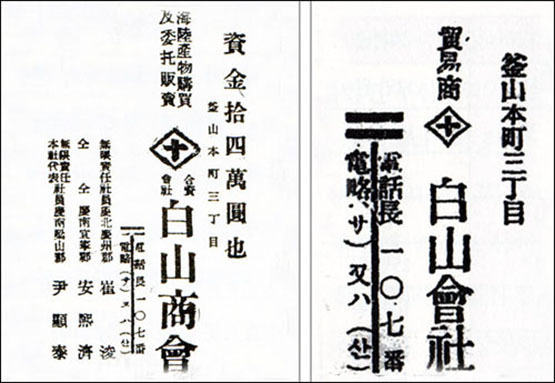 釜山本町三丁目
貿易商 十 白山會社
電話長 一〇七番
電略(サ)又ハ(산)
資金拾四萬圓也
釜山本町三丁目
海陸產物購買
及委托販賣
十 合資會社 白山商會
電話長一〇七番
電略(サ)又ハ(산)
無限責任社員慶北慶州郡 崔浚
仝 仝 慶南宜寧郡 安熙濟
無限責任
本社代表社員慶南梁山郡 尹顯泰